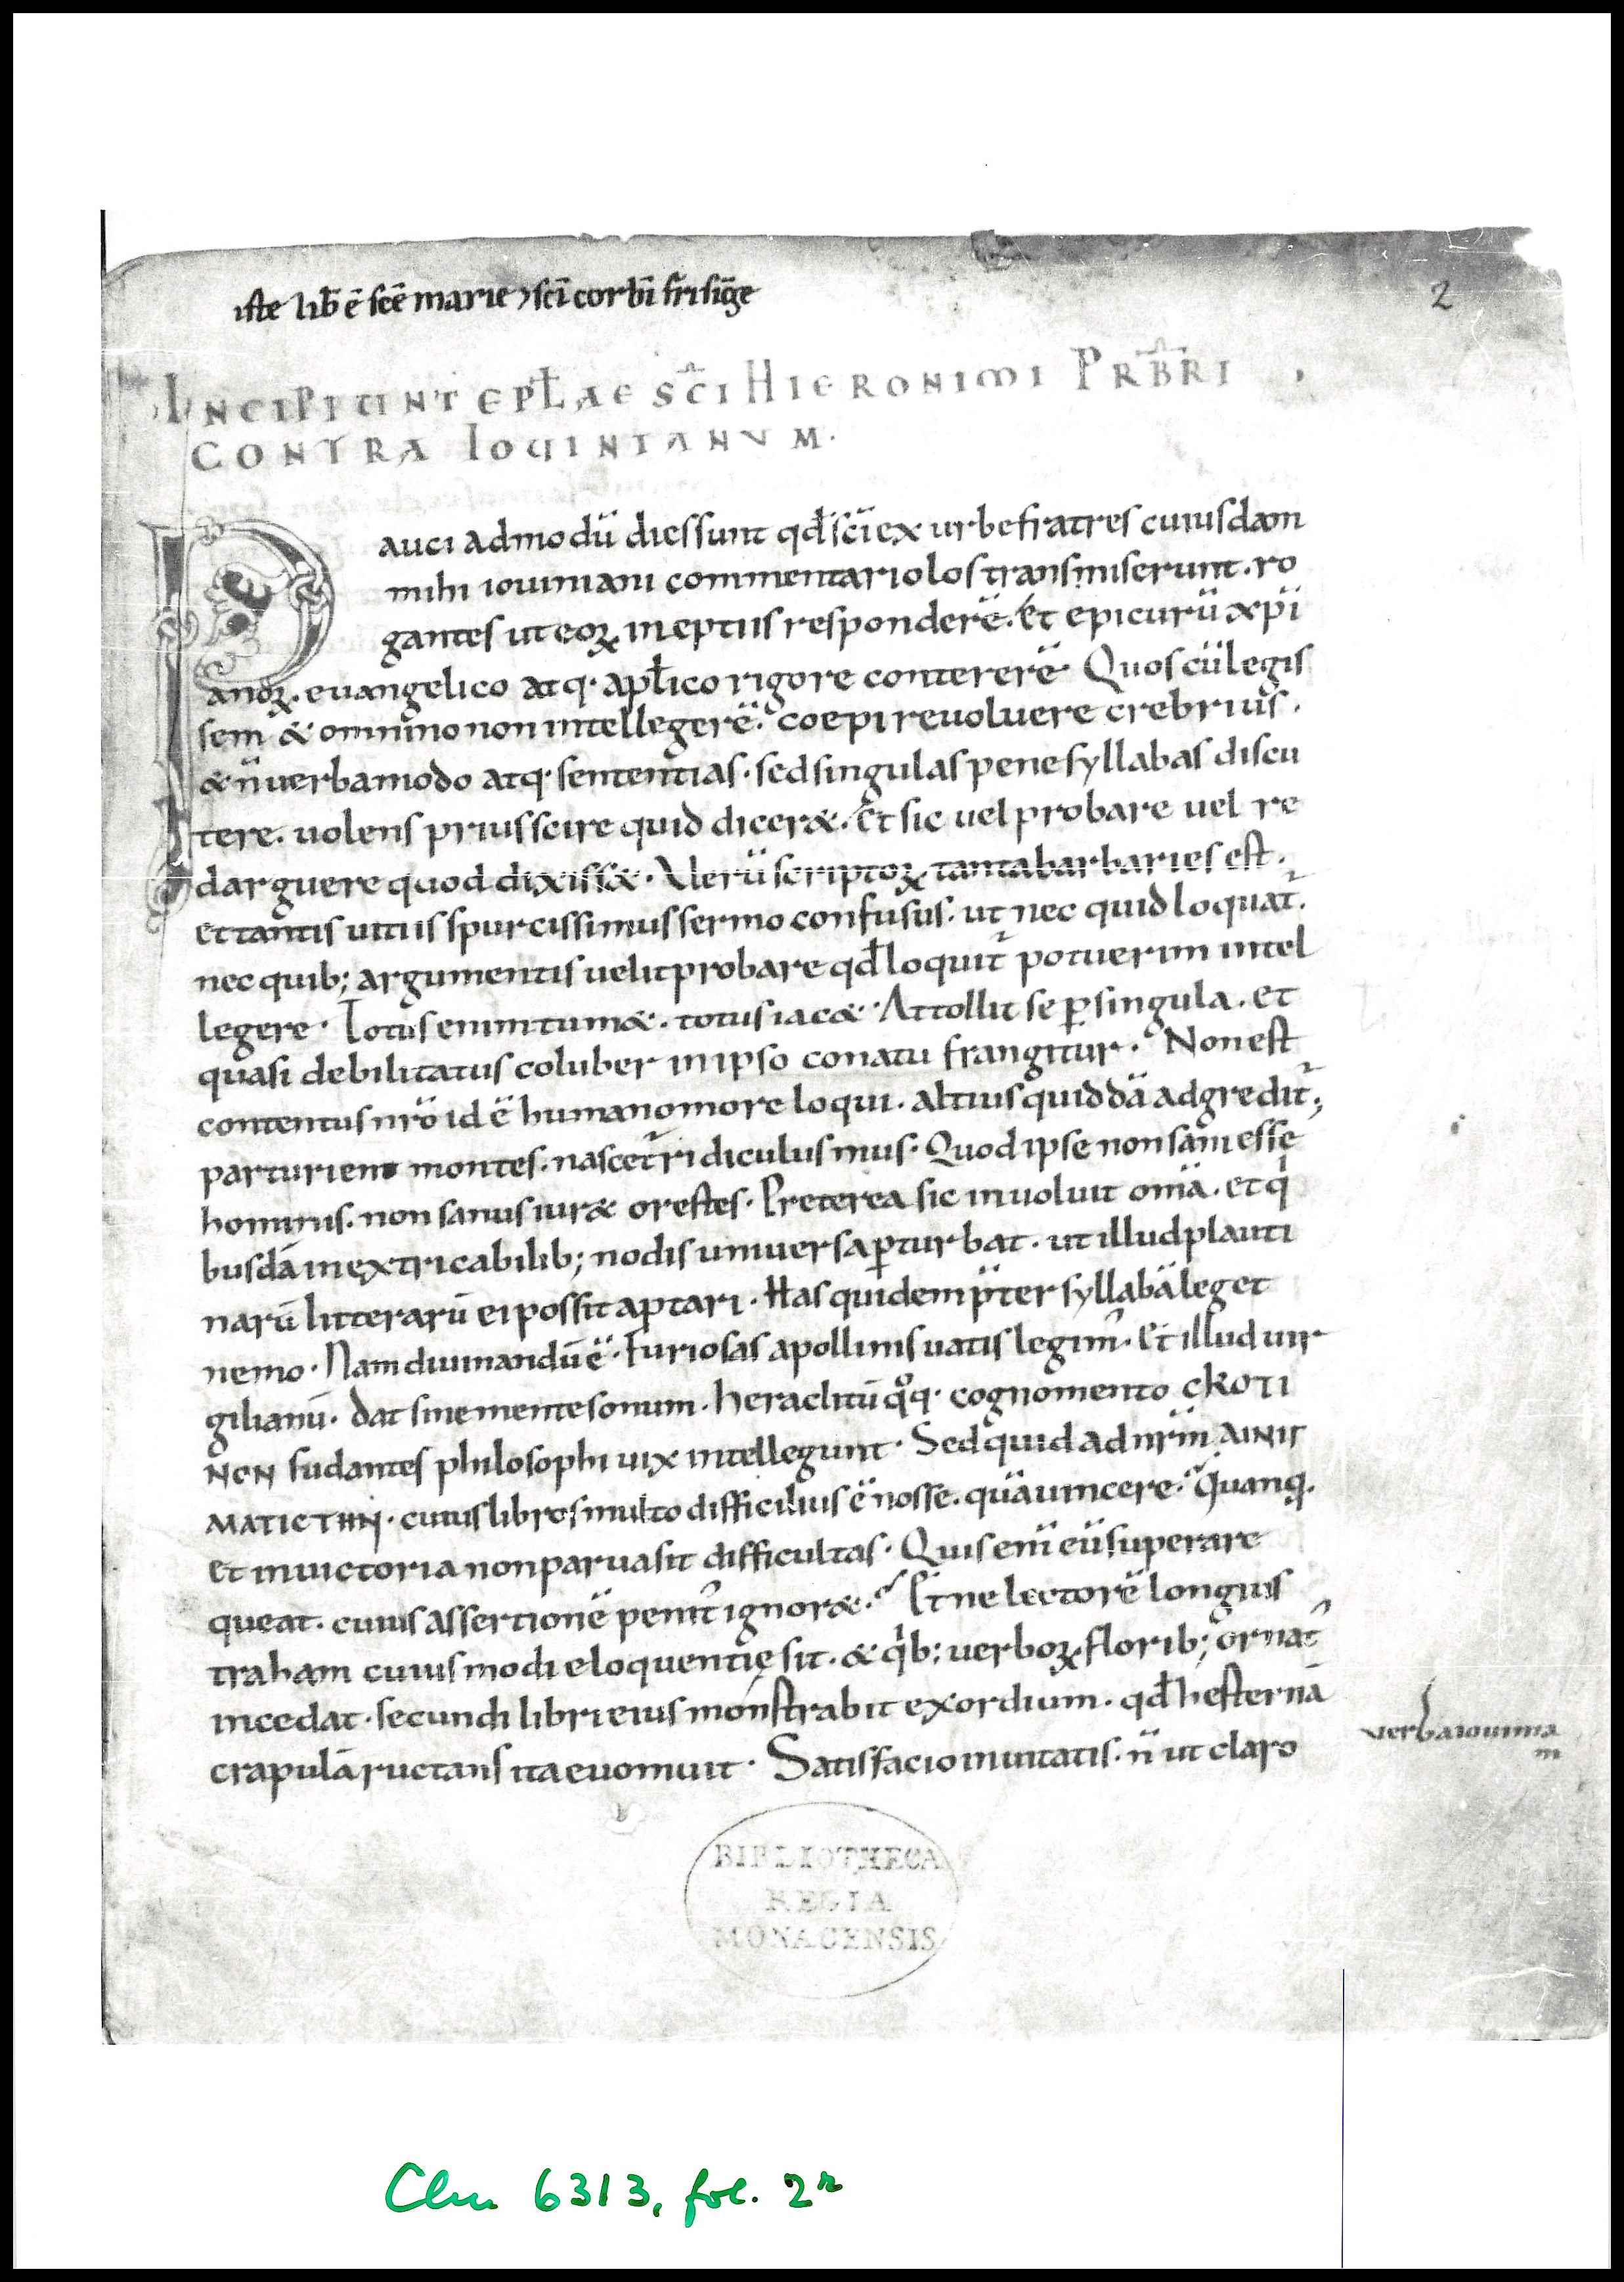 iste lib̄ ē scē marie ⁊ sci corbī frīsīge
2
INCIPIUNT EPLAE SCI HIERONIMI PRBRI
CONTRA IOUINIANUM.
Pauci admodū dies sunt qđ sci ex urbe fratres cuiusdam
mihi iouiniani commentariolos transmiserunt. ro
gantes ut eoꝝ ineptiis responderē. Et epicurū xp̄i
anoꝝ. euangelico atq· apl̄ico rigore contererē· Quos cū legis
sem & omnino non intellegerē. coepi reuoluere crebrius.
& n̄ uerba modo atq· sententias. sed singulas pene syllabas discu
tere. uolens prius scire quid dicer&. Et sic uel probare uel re
darguere quod dixiss&. Uerū scriptoꝝ tanta barbaries est.
et tantis uitiis spurcissimus sermo confusus. ut nec quid loquat̄.
nec quib; argumentis uelit probare qđ loquit̄ potuerim intel
legere. Totus enim tum&. totus iac&. Attollit se ꝑ singula. et
quasi debilitatus coluber in ipso conatu frangitur. Non est
contentus nr̄o id ē humano more loqui. altius quiddā adgredit̄;
parturient montes. nascet̄ ridiculus mus. Quod ipse non sani esse
hominis. non sanus iur& orestes. Preterea sic inuoluit om̄a. et q
busdā inextricabilib; nodis uniuersa ꝑturbat. ut illud plauti
narū litterarū ei possit aptari. Has quidem p̄ter syllabā leget
nemo. Nam diuinandū ē. furiosas apollinis uatis legim̄. Et illud uir
gilianū. dat sine mente sonum. heraclitū qoq· cognomento CKOTI
NON sudantes philosophi uix intellegunt. Sed quid ad nr̄m AINIΓ
MATICTHN. cuius libros multo difficilius ē nosse. quā uincere. Quanq.
et in uictoria non parua sit difficultas. Quis eni eū superare
queat. cuius assertionē penit̄ ignor&. Et ne lectorē longius
traham cuiusmodi eloquentię sit. & qb; uerboꝝ florib; ornat̄
incedat. secundi libri eius monstrabit exordium. qđ hesternā
crapulā ructans ita euomuit. Satisfacio inuitatis. n̄ ut claro
uerba iouinia
ni
BIBLIOTHECA
REGIA
MONACENSIS
Clm 6313, fol. 2r